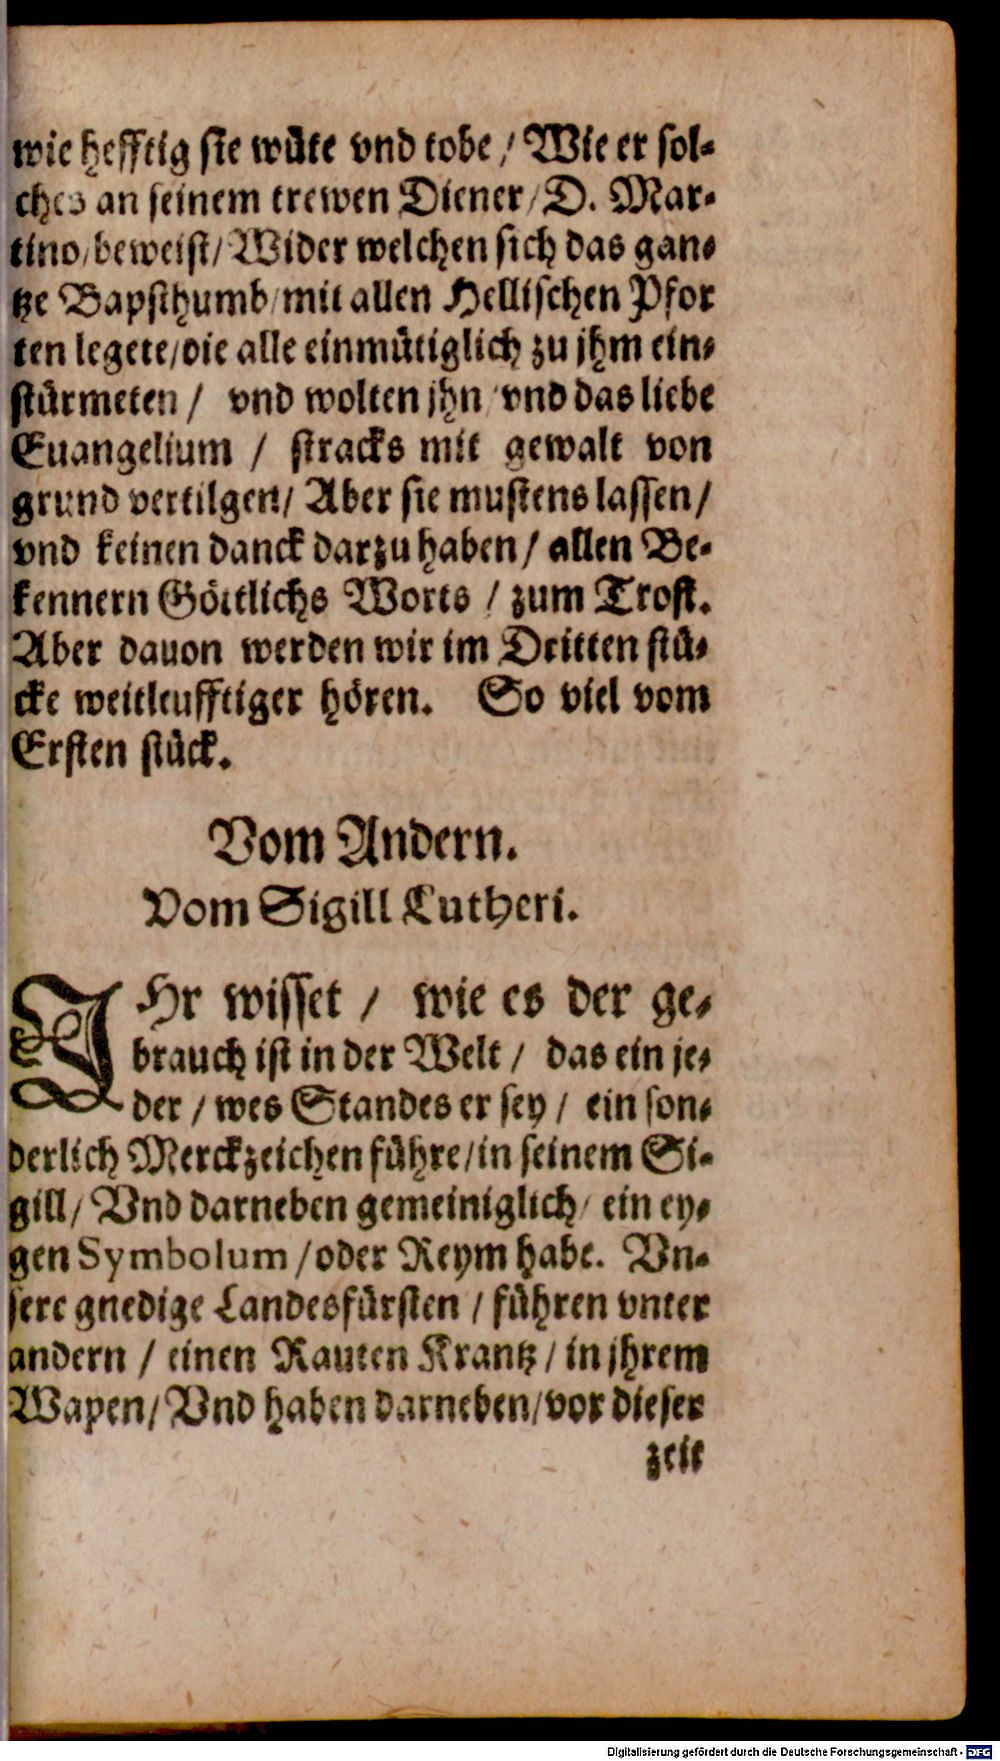 wie hefftig sie wüte vnd tobe / Wie er sol-
ches an seinem trewen Diener / D. Mar-
tino / beweist / Wider welchen sich das gan-
tze Bapsthumb / mit allen Hellischen Pfor
ten legete / die alle einmütiglich zu jhm ein-
stürmeten / vnd wolten jhn / vnd das liebe
Euangelium / stracks mit gewalt von
grund vertilgen / Aber sie mustens lassen /
vnd keinen danck darzu haben / allen Be-
kennern Göttlichs Worts / zum Trost.
Aber dauon werden wir im Dritten stü-
cke weitleufftiger hören. So viel vom
Ersten stück.
Vom Andern.
Vom Sigill Lutheri.
IHr wisset / wie es der ge-
brauch ist in der Welt / das ein je-
der / wes Standes er sey / ein son-
derlich Merckzeichen führe / in seinem Si-
gill / Vnd darneben gemeiniglich / ein ey-
gen Symbolum / oder Reym habe. Vn-
sere gnedige Landesfürsten / führen vnter
andern / einen Rauten Krantz / in jhrem
Wapen / Vnd haben darneben / vor dieser
zeit
Digitalisierung gefördert durch die Deutsche Forschungsgemeinschaft - DFG